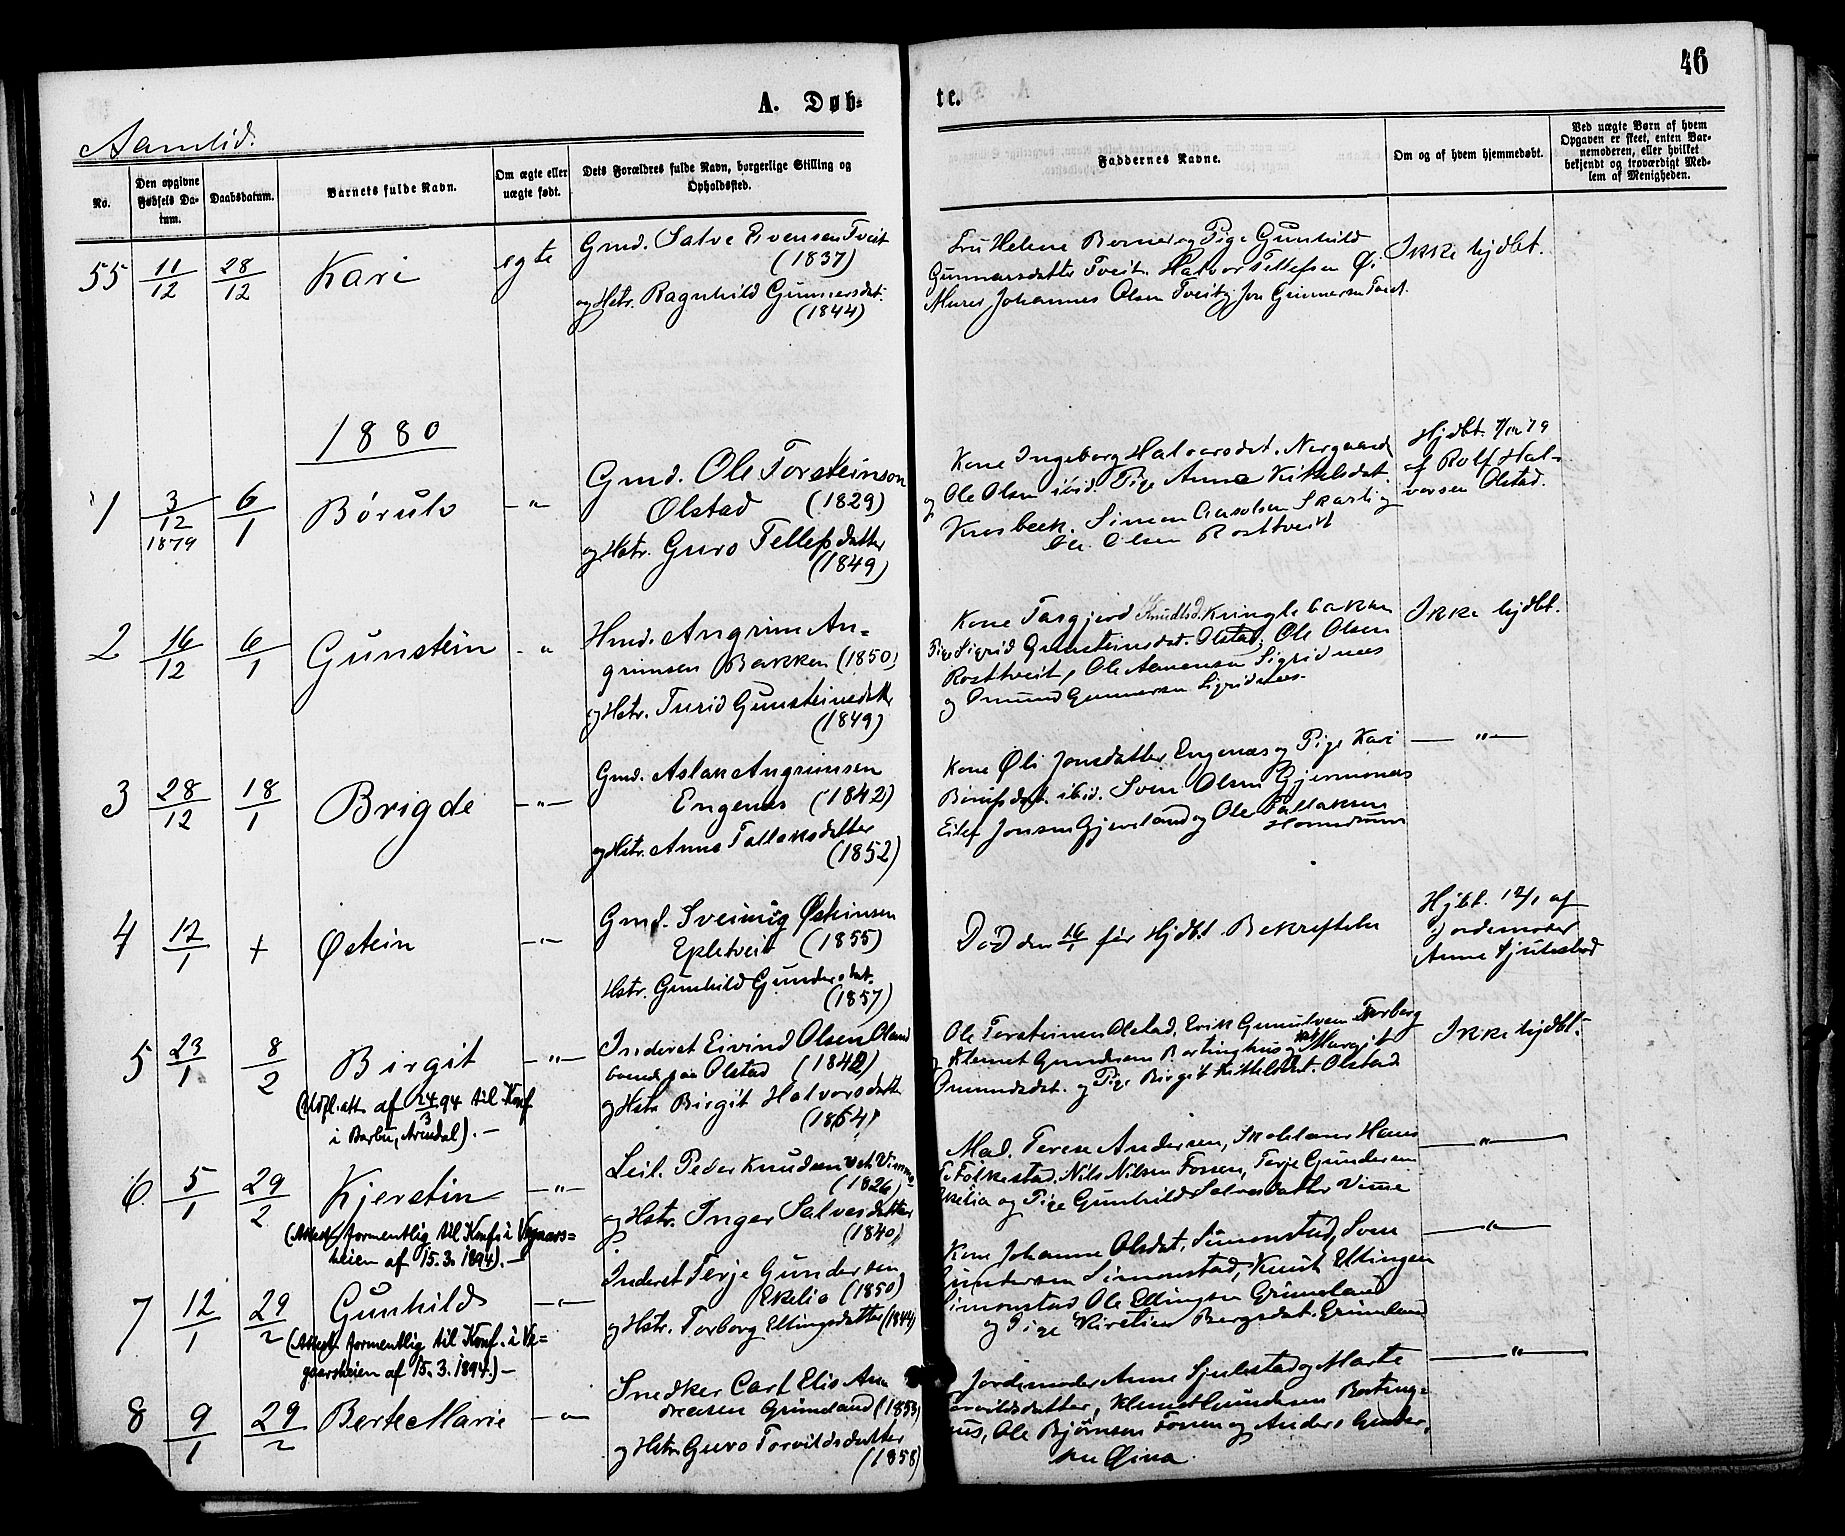 46
A. Døb- te.
Aamlid.
No.
Den opgivne Fødsels Da- tum.
Daabsdatum.
Barnets fulde Navn.
Om ægte eller uægte født.
Dets Forældres fulde Navn, borgerlige Stilling og Opholdssted.
Faddernes Navne.
Om og af hvem hjemmedøbt.
Ved uægte Børn af hvem Opgaven er skeet, enten Bar- nemoderen, eller hvilket bekjendt og troværdigt Med- lem af Menigheden.
55 11/12 28/12 Kari egte
Gmd. Salve Evensen Tveit
(1837)
og Hstr. Ragnhild Gunnersdat.
(1844)
Fru Helene Berner og Pige Gunhild
Gunnarsdatter Tveit. Halvor Tellefsen Ø.
Johannes Olsen Tveit, Jon Gunnersen Tveit.
Ikke hjdbt.
1880
1 3/12 1879 6/1 Børulv -"-
Gmd. Ole Torsteinson
Olstad (1829)
og Hstr. Guro Tellefsdatter
(1849)
Kone Ingeborg Halvorsdat. Nergaard
Ole Olsen ibid. Pige Anne Kittelsdat.
og
Simon Aasolsen Skarli
Ole Olsen Rosttveit
Hjdbt. 7/12 79
af Rolf Hal-
vorsen Olstad.
2 16/12 6/1 Gunstein -"
Hmd. Angrim An-
grimsen Bakken (1850)
og Hstr. Turid Gunsteinsdatter
(1849)
Kone Targjerd Knudtsd. Kringlebakken
Pige Sigrid Gunsteinsdat. Olstad, Ole Olsen
Rosttveit, Ole Aamonsen Sigridnæs
og Omund Gunnersen Sigridnæs.
Ikke hjdbt.
3 28/12 18/1 Brigde -"-
Gmd. Aslak Angrimsen
Engenæs (1842)
og Hstr. Anne Tallaksdatter
(1852)
Kone Øli Jonsdatter Engenæs og Pige Kari
Børufsdat. ibid. Sven Olsen Gjermonæs
Eilef Jonsen Gjeveland og Ole Tallaksen
-"-
4 12/1 + Østein -"-
Gmd. Sveinug Østeinsen
Epletveit (1855)
Hstr. Gunhild Gundersdat.
(1857)
Død den 16/1 før Hjdbt. Bekreftelse
Hjbt. 12/1 af
Jordemoder
Anne Sjulestad
5 23/1 8/2 Birgit -"-
(Udfl.att. af 24/3 94 til Konf
i Barbu, Arendal). -
Inderst Eivind Olsen Oland
boende paa Olstad (1842)
og Hstr Birgit Halvorsdatter
(1854)
Ole Torsteinsen Olstad. Erik Gunulvsen
Klemet Gundersen Bortinghus og Margit
Omundsdat. og Pige Birgit Kittelsdat. Olstad
Ikke hjdbt.
6 5/1 29/2 Kjerstin -"-
(Attest formentlig til Konf. i Vegaars-
heien af 15.3.1894). -
Leil. Peder Knudsen
(1826)
og Hstr. Inger Salvesdatter
(1840)
Mad. Terese Andersen, Skolelærer Hans
Folkestad, Nils Nilsen Fossen, Terje Gundersen
Ekelia og Pige Gunhild Salvesdatter Vimme
-"-
7 12/1 29/2 Gunhild -"-
(Attest formentlig til Konf. i Ve-
gaarsheien af 15.3.1894.) -
Inderst Terje Gundersen
Ekelia (1850)
og Hstr. Torborg Ellingsdatter (1844)
Kone Johanne Olsdat. Simonstad, Sven
Gundersen Simonstad, Knut Ellingsen
Simonstad Ole Ellingsen Grimeland
og Pige Kirstine Bergsdat. Grimeland
-"-
8 9/1 29/2 Berte Marie -"-
Snedker Carl Elis An
dreasen Grimeland (1853)
og Hstr Guro Torvildsdatter
(1858)
Jordemoder Anne Sjulestad og Marte
Torvildsdatter, Klemet Gundersen Borting-
hus, Ole Bjørnsen Fossen og Anders Gunder-
sen
-"-